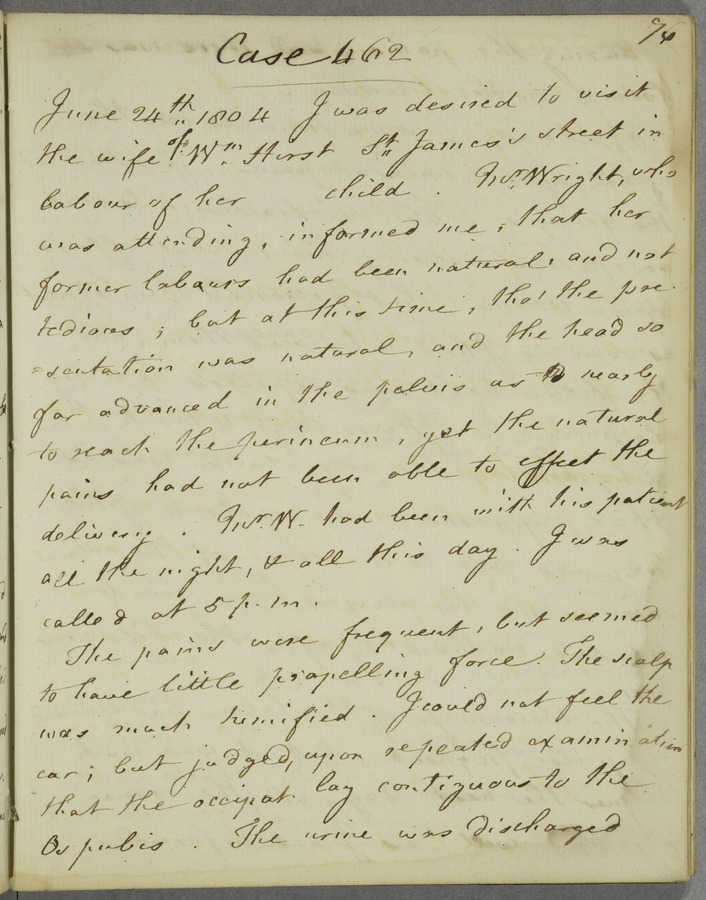 96
Case 462
June 24th 1804 I was desired to visit
the wife of Wm. Hirst St James's street in
labour of her child. Mr Wright, who
was attending, informed me, that her
former labours had been natural, and not
tedious; but at this time, tho' the pre-
=sentation was natural, and the head so
far advanced in the pelvis as nearly
to reach the perineum, yet the natural
pains had not been able to effect the
delivery. Mr. W. had been with his patient
all the night, & all this day. I was
called at 5 p.m.
The pains were frequent, but seemed
to have little propelling force. The scalp
was much tumified. I could not feel the
ear; but judged, upon repeated examination
that the occiput lay contiguous to the
Os pubis. The urine was discharged